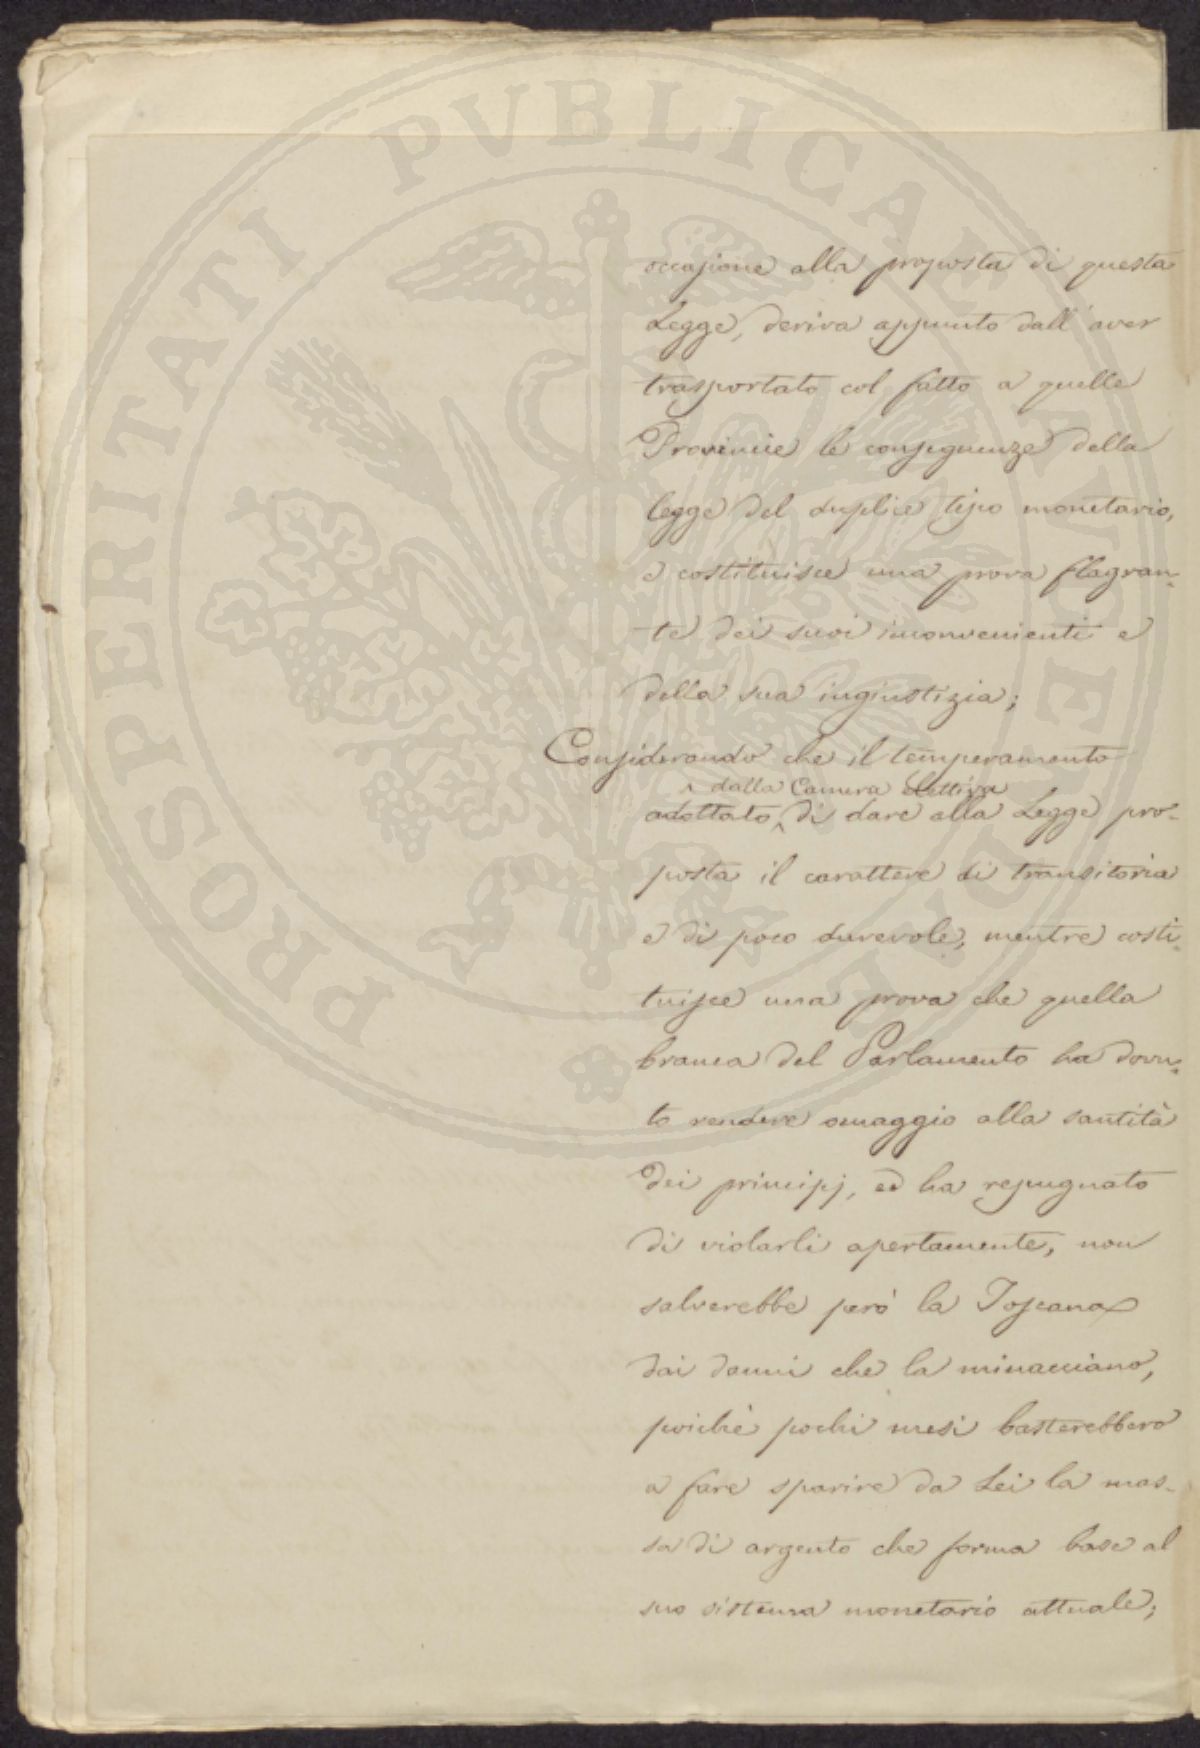 PROSPERITATI PVBLICAE AVGENDAE
occasione alla proposta di questa
Legge, deriva appunto dall'aver
trasportato col fatto a quelle
Provincie le conseguenze della
legge del duplice tipo monetario,
e costituisce una prova flagran-
te dei suoi inconvenienti e
della sua ingiustizia;
Considerando che il temperamento
dalla Camera elettiva
adottato, di dare alla Legge pro-
posta il carattere di transitoria
e di poco durevole, mentre costi-
tuisce una prova che quella
branca del Parlamento ha dovu-
to rendere omaggio alla santità
dei principj, ed ha repugnato
di violarli apertamente, non
salverebbe però la Toscana
dai danni che la minacciano,
poichè pochi mesi basterebbero
a fare sparire da Lei la mas-
sa di argento che forma base al
suo sistema monetario attuale;